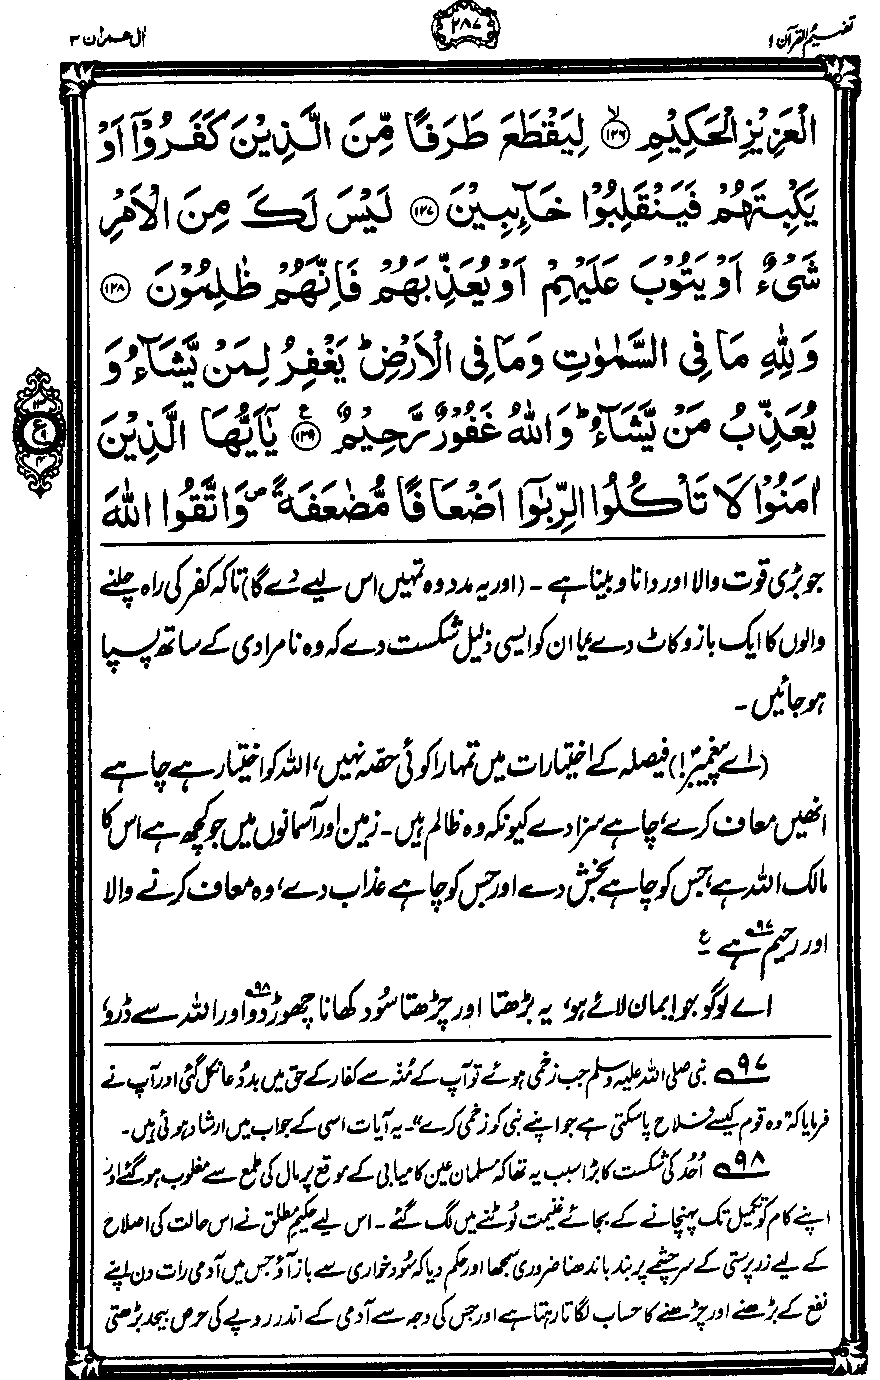 تفہیم القرآن ۱
۲۸۷
اٰل عمرٰن ۳
الْعَزِيْزِ الْحَكِيْمِ ۙ﴿۱۲۶﴾ لِيَقْطَعَ طَرَفًا مِّنَ الَّذِيْنَ كَفَرُوْۤا اَوْ
يَكْبِتَهُمْ فَيَنْقَلِبُوْا خَآىِٕبِيْنَ ﴿۱۲۷﴾ لَيْسَ لَكَ مِنَ الْاَمْرِ
شَيْءٌ اَوْ يَتُوْبَ عَلَيْهِمْ اَوْ يُعَذِّبَهُمْ فَاِنَّهُمْ ظٰلِمُوْنَ ﴿۱۲۸﴾
وَ لِلّٰهِ مَا فِي السَّمٰوٰتِ وَمَا فِي الْاَرْضِ ؕ يَغْفِرُ لِمَنْ يَّشَآءُ وَ
يُعَذِّبُ مَنْ يَّشَآءُ ؕ وَاللّٰهُ غَفُوْرٌ رَّحِيْمٌ ﴿۱۲۹﴾ ع يٰۤاَيُّهَا الَّذِيْنَ
اٰمَنُوْا لَا تَاْكُلُوا الرِّبٰوۤا اَضْعَافًا مُّضٰعَفَةً ۪ وَاتَّقُوا اللّٰهَ
۳
ع
۹
۴
جو بڑی قوت والا اور دانا و بینا ہے ۔ (اور یہ مدد وہ تمہیں اس لیے دے گا) تاکہ کفر کی راہ چلنے
والوں کا ایک بازو کاٹ دے، یا ان کو ایسی ذلیل شکست دے کہ وہ نامرادی کے ساتھ پسپا
ہو جائیں ۔
(اے پیغمبرؐ!) فیصلہ کے اختیارات میں تمہارا کوئی حصہ نہیں، اللہ کو اختیار ہے چاہے
انھیں معاف کرے، چاہے سزا دے کیونکہ وہ ظالم ہیں ۔ زمین اور آسمانوں میں جو کچھ ہے اس کا
مالک اللہ ہے، جس کو چاہے بخش دے اور جس کو چاہے عذاب دے، وہ معاف کرنے والا
اور رحیم ہے ۹۷ ۔ ع
اے لوگو جو ایمان لائے ہو، یہ بڑھتا اور چڑھتا سُود کھانا چھوڑ دو ۹۸ اور اللہ سے ڈرو،
۹۷ نبی صلی اللہ علیہ وسلم جب زخمی ہوئے تو آپ کے مُنہ سے کفار کے حق میں بددُعا نکل گئی اور آپ نے
فرمایا کہ ”وہ قوم کیسے فلاح پا سکتی ہے جو اپنے نبی کو زخمی کرے“ ۔ یہ آیات اسی کے جواب میں ارشاد ہوئی ہیں ۔
۹۸ اُحُد کی شکست کا بڑا سبب یہ تھا کہ مسلمان عین کامیابی کے موقع پر مال کی طمع سے مغلوب ہو گئے اور
اپنے کام کو تکمیل تک پہنچانے کے بجائے غنیمت لُوٹنے میں لگ گئے ۔ اس لیے حکیمِ مطلق نے اس حالت کی اصلاح
کے لیے زرپرستی کے سرچشمے پر بند باندھنا ضروری سمجھا اور حکم دیا کہ سُود خواری سے باز آؤ جس میں آدمی رات دن اپنے
نفع کے بڑھنے اور چڑھنے کا حساب لگاتا رہتا ہے اور جس کی وجہ سے آدمی کے اندر روپے کی حرص بیحد بڑھتی